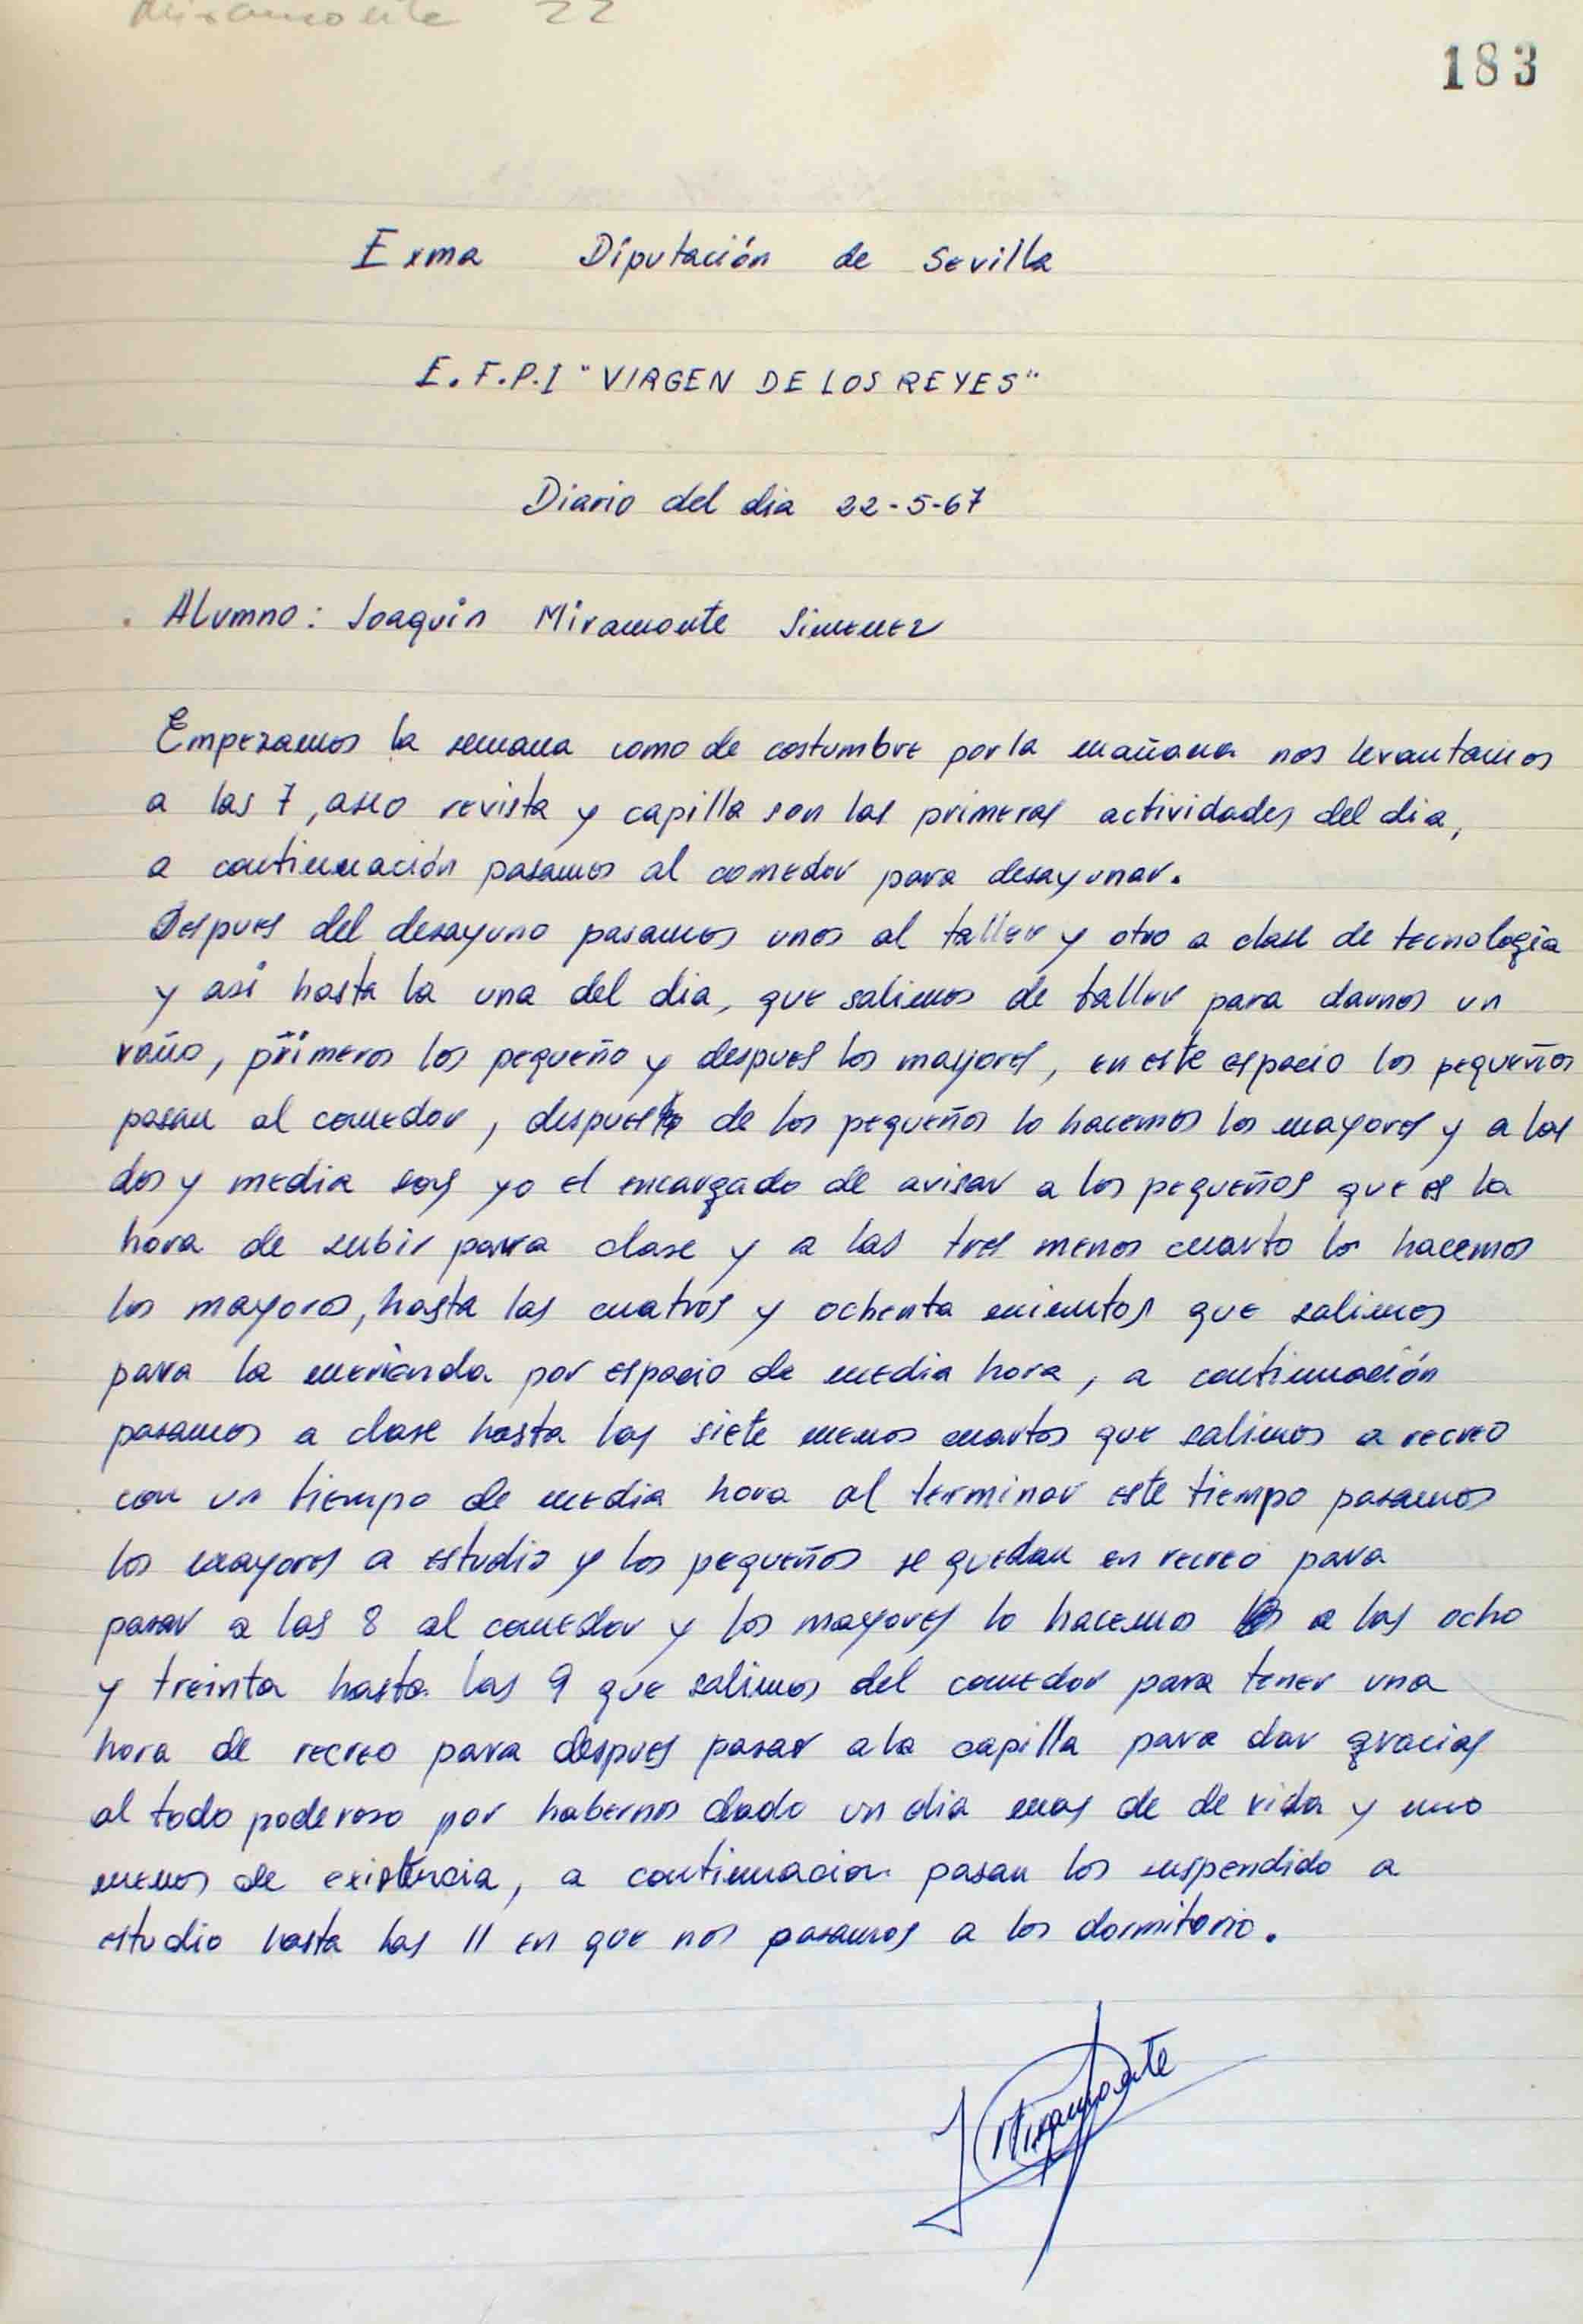 Miramonte 22
183
Exma Diputación de Sevilla
E.F.P.I "VIRGEN DE LOS REYES"
Diario del dia 22-5-67
Alumno: Joaquin Miramonte Simenez
Empezamos la semana como de costumbre por la mañana nos levantamos
a las 7, aseo revista y capilla son las primeras actividades del dia,
a continuación pasamos al comedor para desayunar.
Despues del desayuno pasamos unos al taller y otro a clase de tecnologia
y asi hasta la una del dia, que salimos de taller para darnos un
vaño, primeros los pequeño y despues los mayores, en este espacio los pequeños
pasan al comedor, despues de los pequeños lo hacemos los mayores y a las
dos y media soy yo el encargado de avisar a los pequeños que es la
hora de subir para clase y a las tres menos cuarto lo hacemos
los mayores, hasta las cuatros y ochenta minutos que salimos
para la merienda por espacio de media hora, a continuación
pasamos a clase hasta las siete menos cuartos que salimos a recreo
con un tiempo de media hora al terminar este tiempo pasamos
los mayores a estudio y los pequeños se quedan en recreo para
pasar a las 8 al comedor y los mayores lo hacemos a las ocho
y treinta hasta las 9 que salimos del comedor para tener una
hora de recreo para despues pasar a la capilla para dar gracias
al todo poderoso por habernos dado un dia mas de de vida y uno
menos de existencia, a continuacion pasan los suspendido a
estudio hasta las 11 en que nos pasamos a los dormitorio.
J Miramonte